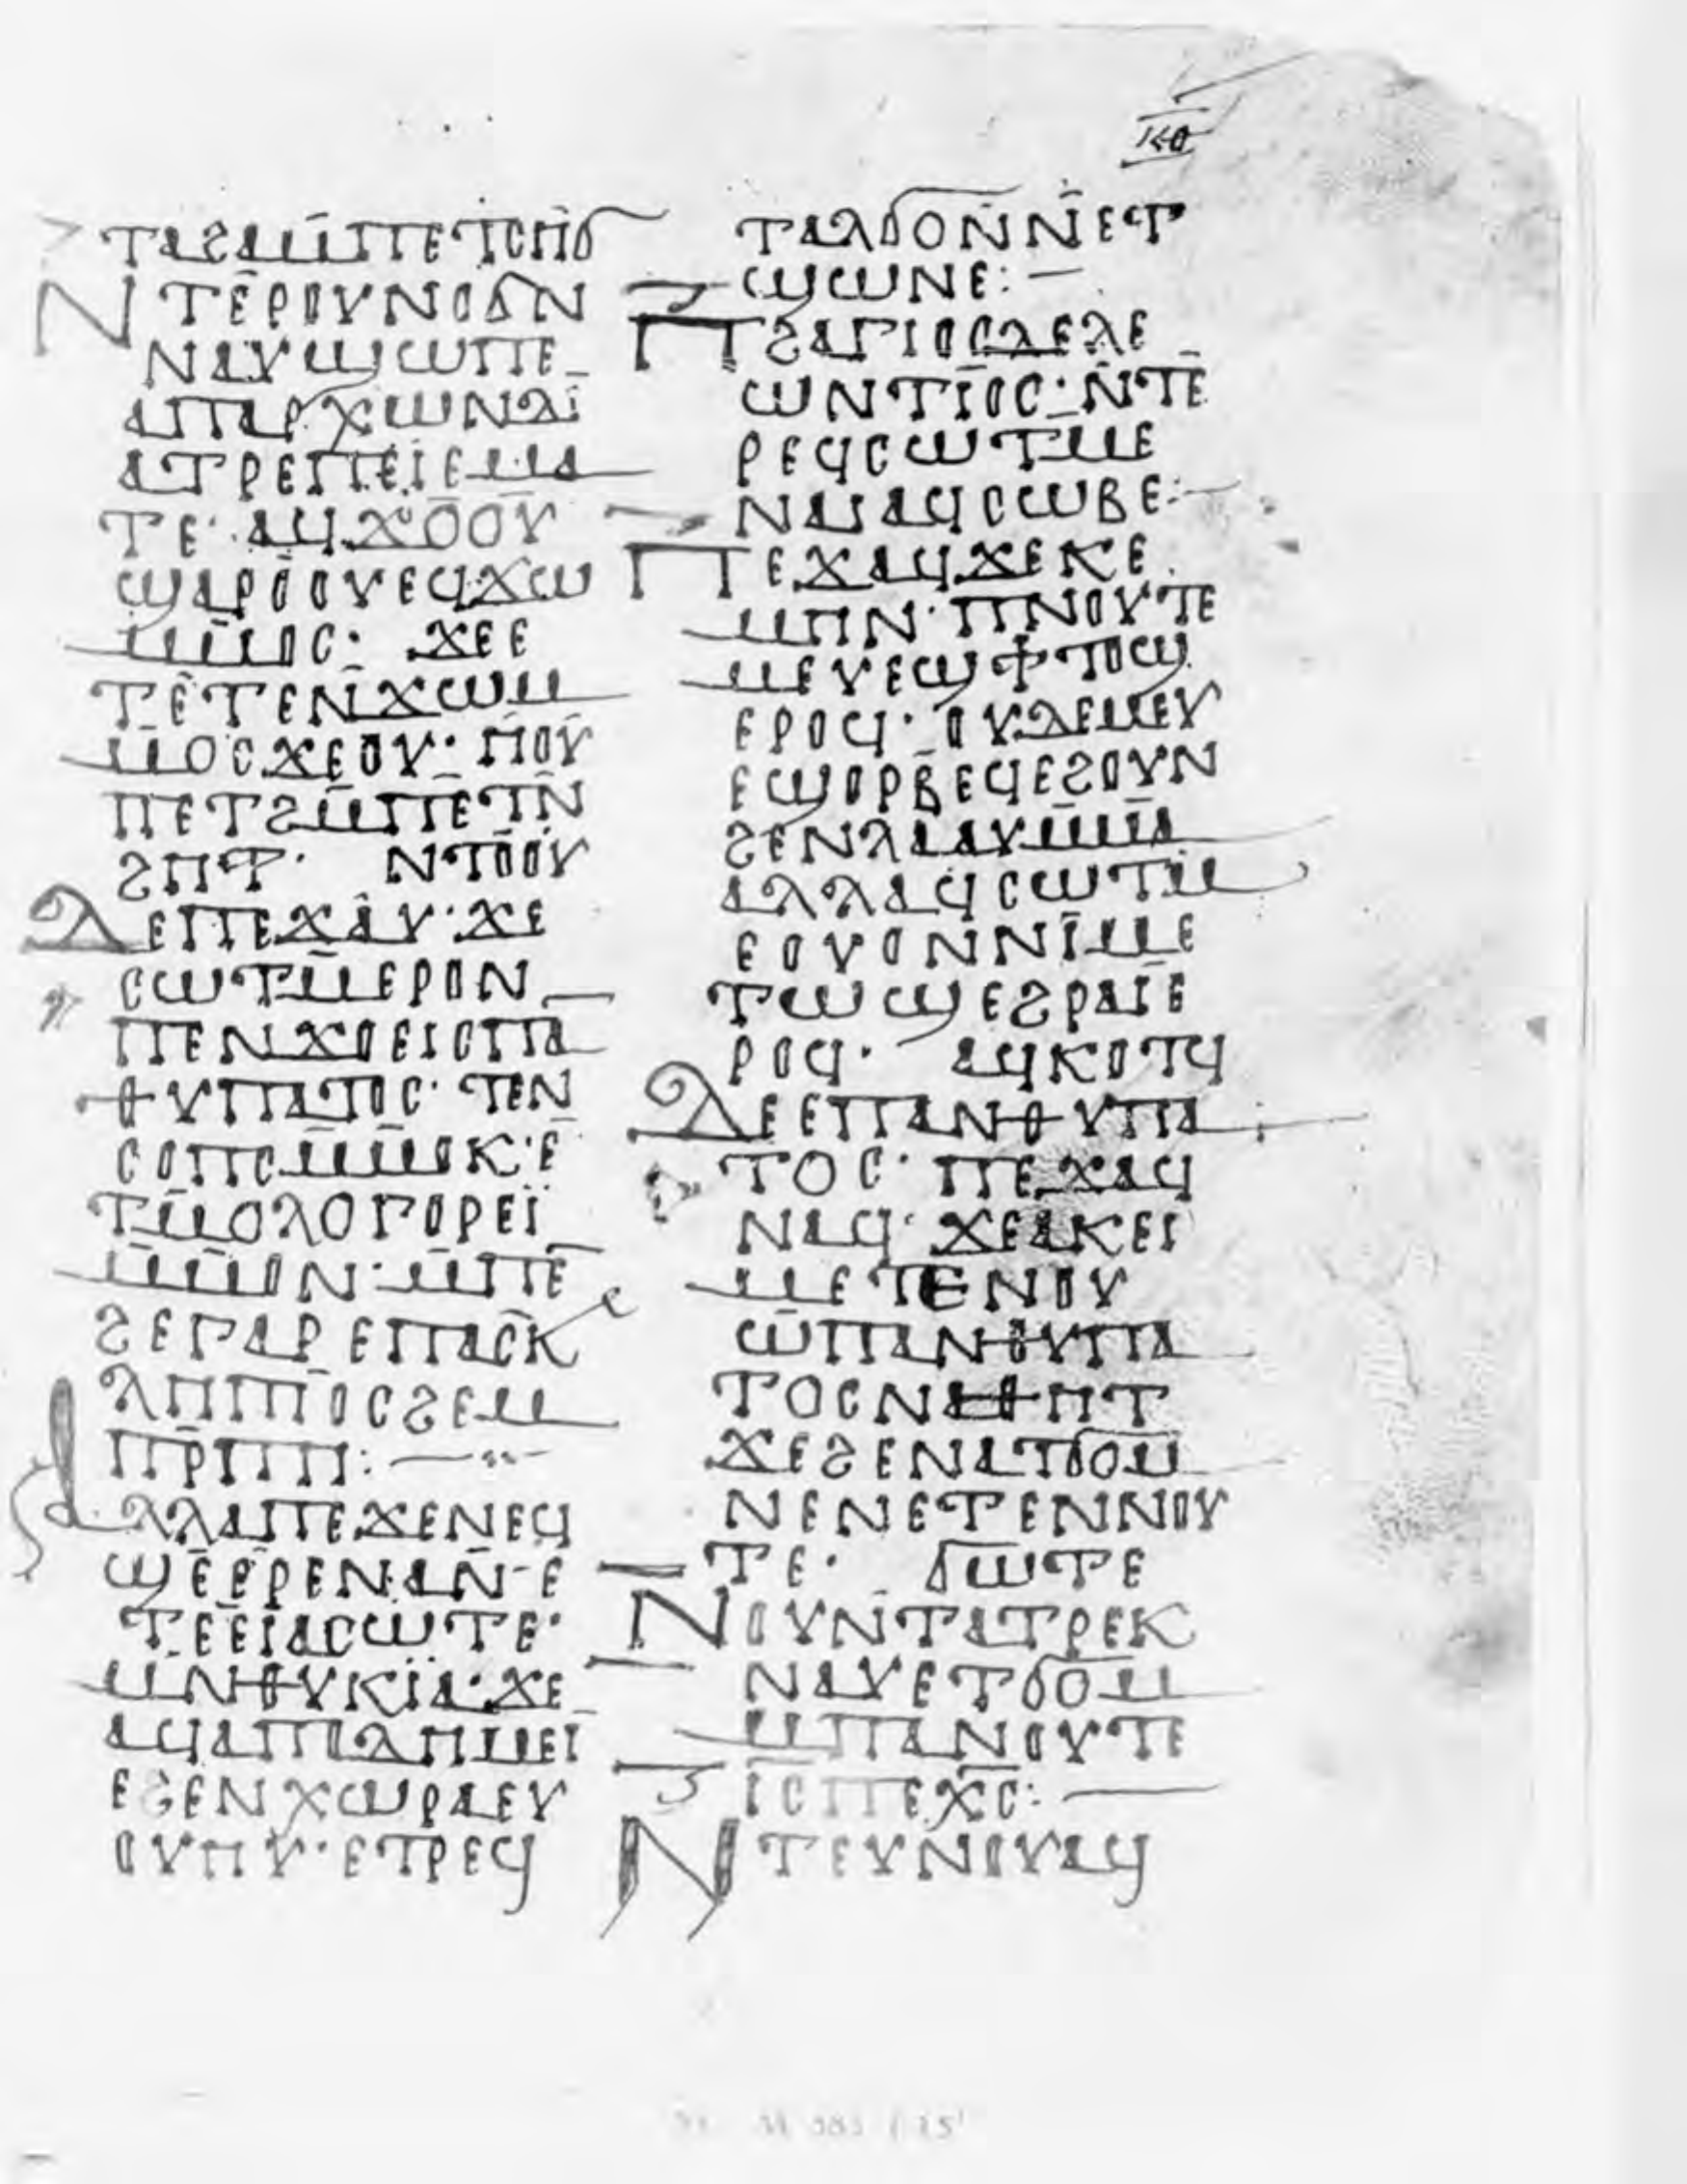 ⲕⲑ
ⲧⲁϩⲁⲙ̄ⲡⲉⲧⲥⲏϭ
ⲛⲧⲉ̄ⲣⲟⲩⲛⲟϭⲛ
ⲛⲁⲩϣⲱⲡⲉ
ⲁⲡⲁⲣⲭⲱⲛⲇⲓ̈
ⲁⲧⲣⲉⲡⲉⲓⲉⲙⲁ
ⲧⲉ· ⲁϥϫⲟⲟⲩ
ϣⲁⲣⲟⲟⲩⲉϥϫⲱ
ⲙ̄ⲙⲟⲥ· ϫⲉⲉ
ⲧⲉⲧⲉⲛϫⲱⲙ
ⲙⲟⲥϫⲉⲟⲩ· ⲏⲟⲩ
ⲡⲉⲧϩⲙ̄ⲡⲉⲧⲛ̄
ϩⲏⲧ· ⲛⲧⲟⲟⲩ
ⲇⲉⲡⲉϫⲁⲩ· ϫⲉ
ⲥⲱⲧⲙ̄ⲉⲣⲟⲛ
ⲡⲉⲛϫⲟⲉⲓⲥⲡⲁ
ⲑⲩⲡⲁⲧⲟⲥ· ⲧⲉⲛ
ⲥⲟⲡⲥⲙ̄ⲙⲟⲕ· ⲉ̄
ⲧⲙ̄ⲟⲗⲟⲅⲟⲣⲉⲓ̈
ⲙ̄ⲙⲟⲛ· ⲙ̄ⲡⲉ̄
ϩⲉⲅⲁⲣ ⲉⲡⲁⲥ̄ⲕ
ⲗⲏⲡⲓⲟⲥϩⲉⲙ
ⲡⲣ̄ⲡⲏ:—
ⲁⲗⲗⲁⲡⲉϫⲉⲛⲉϥ
ϣⲉⲉⲣⲉⲛⲁⲛ̄· ⲉ
ⲧⲉⲉⲓⲁⲥⲱⲧⲉ·
ⲙⲛⲑⲩⲕⲓ̈ⲁ· ϫⲉ
ⲁϥⲁⲡⲟⲇⲏⲙⲉⲓ̈
ⲉϩⲉⲛⲭⲱⲣⲁⲉⲩ
ⲟⲩⲏⲩ· ⲉⲧⲣⲉϥ
ⲧⲁⲗϭⲟⲛ̄ⲛ̄ⲉⲧ
ϣⲱⲛⲉ:—
ⲡϩⲁⲅⲓⲟⲥⲇⲉⲗⲉ
ⲱⲛⲧⲓⲟⲥ· ⲛ̄ⲧⲉ̄
ⲣⲉϥⲥⲱⲧⲙⲉ
ⲛⲁⲓⲁϥⲥⲱⲃⲉ:—
ⲡⲉϫⲁϥϫⲉⲕⲉ
ⲙⲏⲛ· ⲡⲛⲟⲩⲧⲉ
ⲙⲉⲩⲉϣϯⲧⲟϣ
ⲉⲣⲟϥ· ⲟⲩⲇⲉⲙⲉⲩ
ⲉϣⲟⲣⲃ̄ⲉϥⲉϩⲟⲩⲛ
ϩⲉⲛⲗⲁⲁⲩⲙ̄ⲙⲁ
ⲁⲗⲗⲁϥⲥⲱⲧⲙ
ⲉⲟⲩⲟⲛⲛⲓⲙⲉ
ⲧⲱϣⲉϩⲣⲁⲓ̈ⲉ
ⲣⲟϥ· ⲁϥⲕⲟⲧϥ
ⲇⲉⲉⲡⲁⲛⲑⲩⲡⲁ
ⲧⲟⲥ· ⲡⲉϫⲁϥ
ⲛⲁϥ· ϫⲉⲁⲕⲉⲓ
ⲙⲉⲧⲉⲛⲟⲩ
ⲱ̄ⲡⲁⲛⲑⲩⲡⲁ
ⲧⲟⲥⲛⲁⲑⲏⲧ
ϫⲉϩⲉⲛⲁⲧϭⲟⲙ
ⲛⲉⲛⲉⲧⲉⲛⲛⲟⲩ
ⲧⲉ· ϭⲱⲧⲉ
ⲛⲟⲩⲛ̄ⲧⲁⲧⲣⲉⲕ
ⲛⲁⲩⲉⲧϭⲟⲙ
ⲙ̄ⲡⲁⲛⲟⲩⲧⲉ
ⲓ̄ⲥ̄ⲡⲉⲭ̄ⲥ̄:—
ⲛⲧⲉⲩⲛⲟⲩⲁϥ